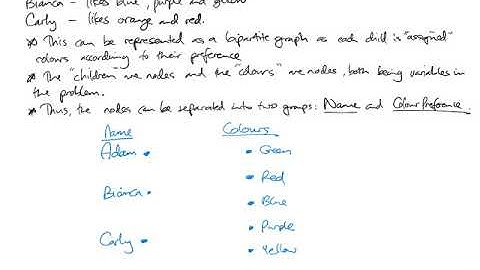 Bianca - likes blue, purple and yellow
Carly - likes orange and red.
* This can be represented as a bipartite graph as each child is "assigned"
colours according to their preference
* The "children" are nodes and the "colours" are nodes, both being variables in
the problem.
* Thus, the nodes can be separated into two groups: Name and Colour Preference.
Name Colours
Adam • • Green
• Red
Bianca • • Blue
• Purple
Carly • • Yellow